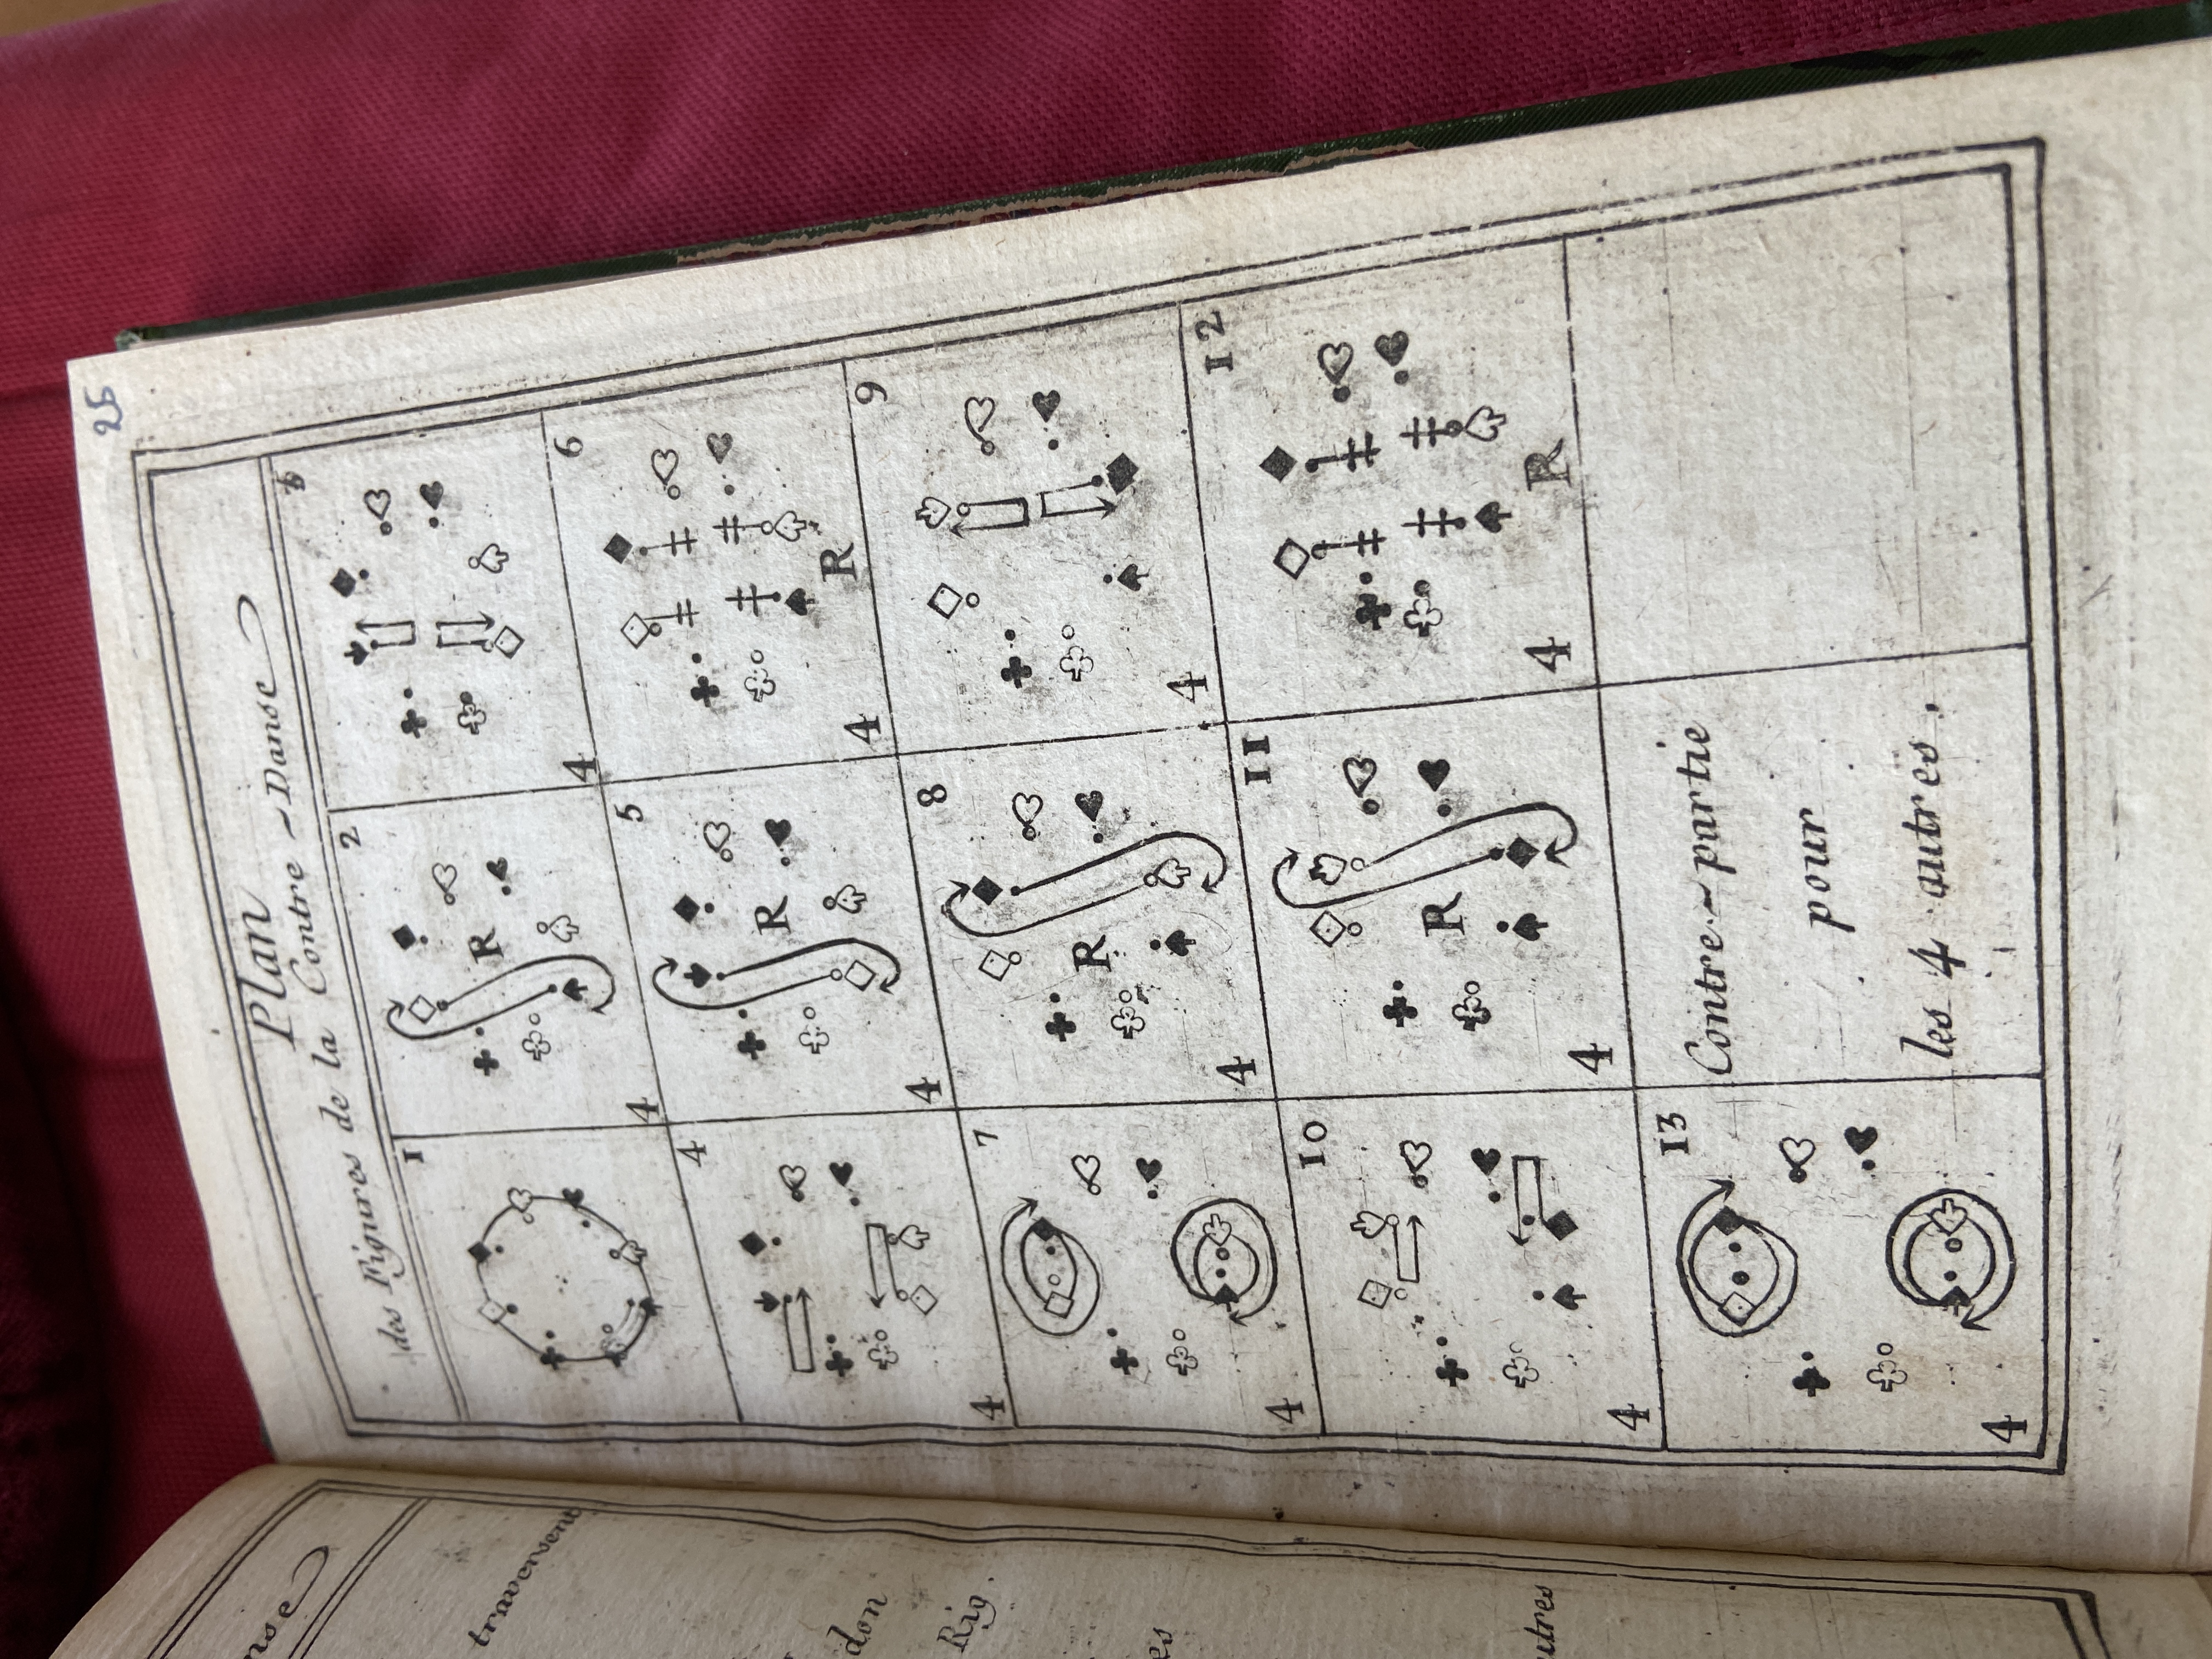 25
Plan
des Figures de la Contre-Danse
1
2
R
4
3
4
4
4
5
R
4
6
R
4
7
4
8
R
4
9
4
10
4
11
R
4
12
R
4
13
4
Contre-partie
pour
les 4 autres.
nse
traversent
don
Rig.
es
utres